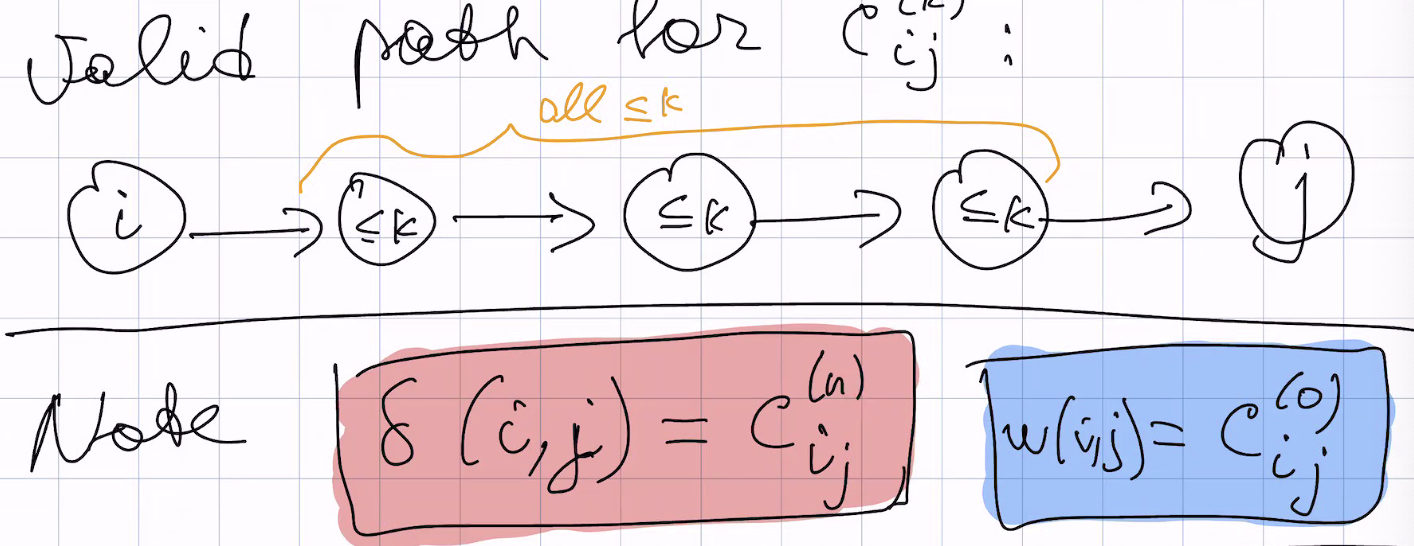 Valid path for C_{ij}^{(k)} :
all ≤ k
i → ≤k → ≤k → ≤k → j
Note δ(i,j) = C_{ij}^{(n)} w(i,j) = C_{ij}^{(0)}